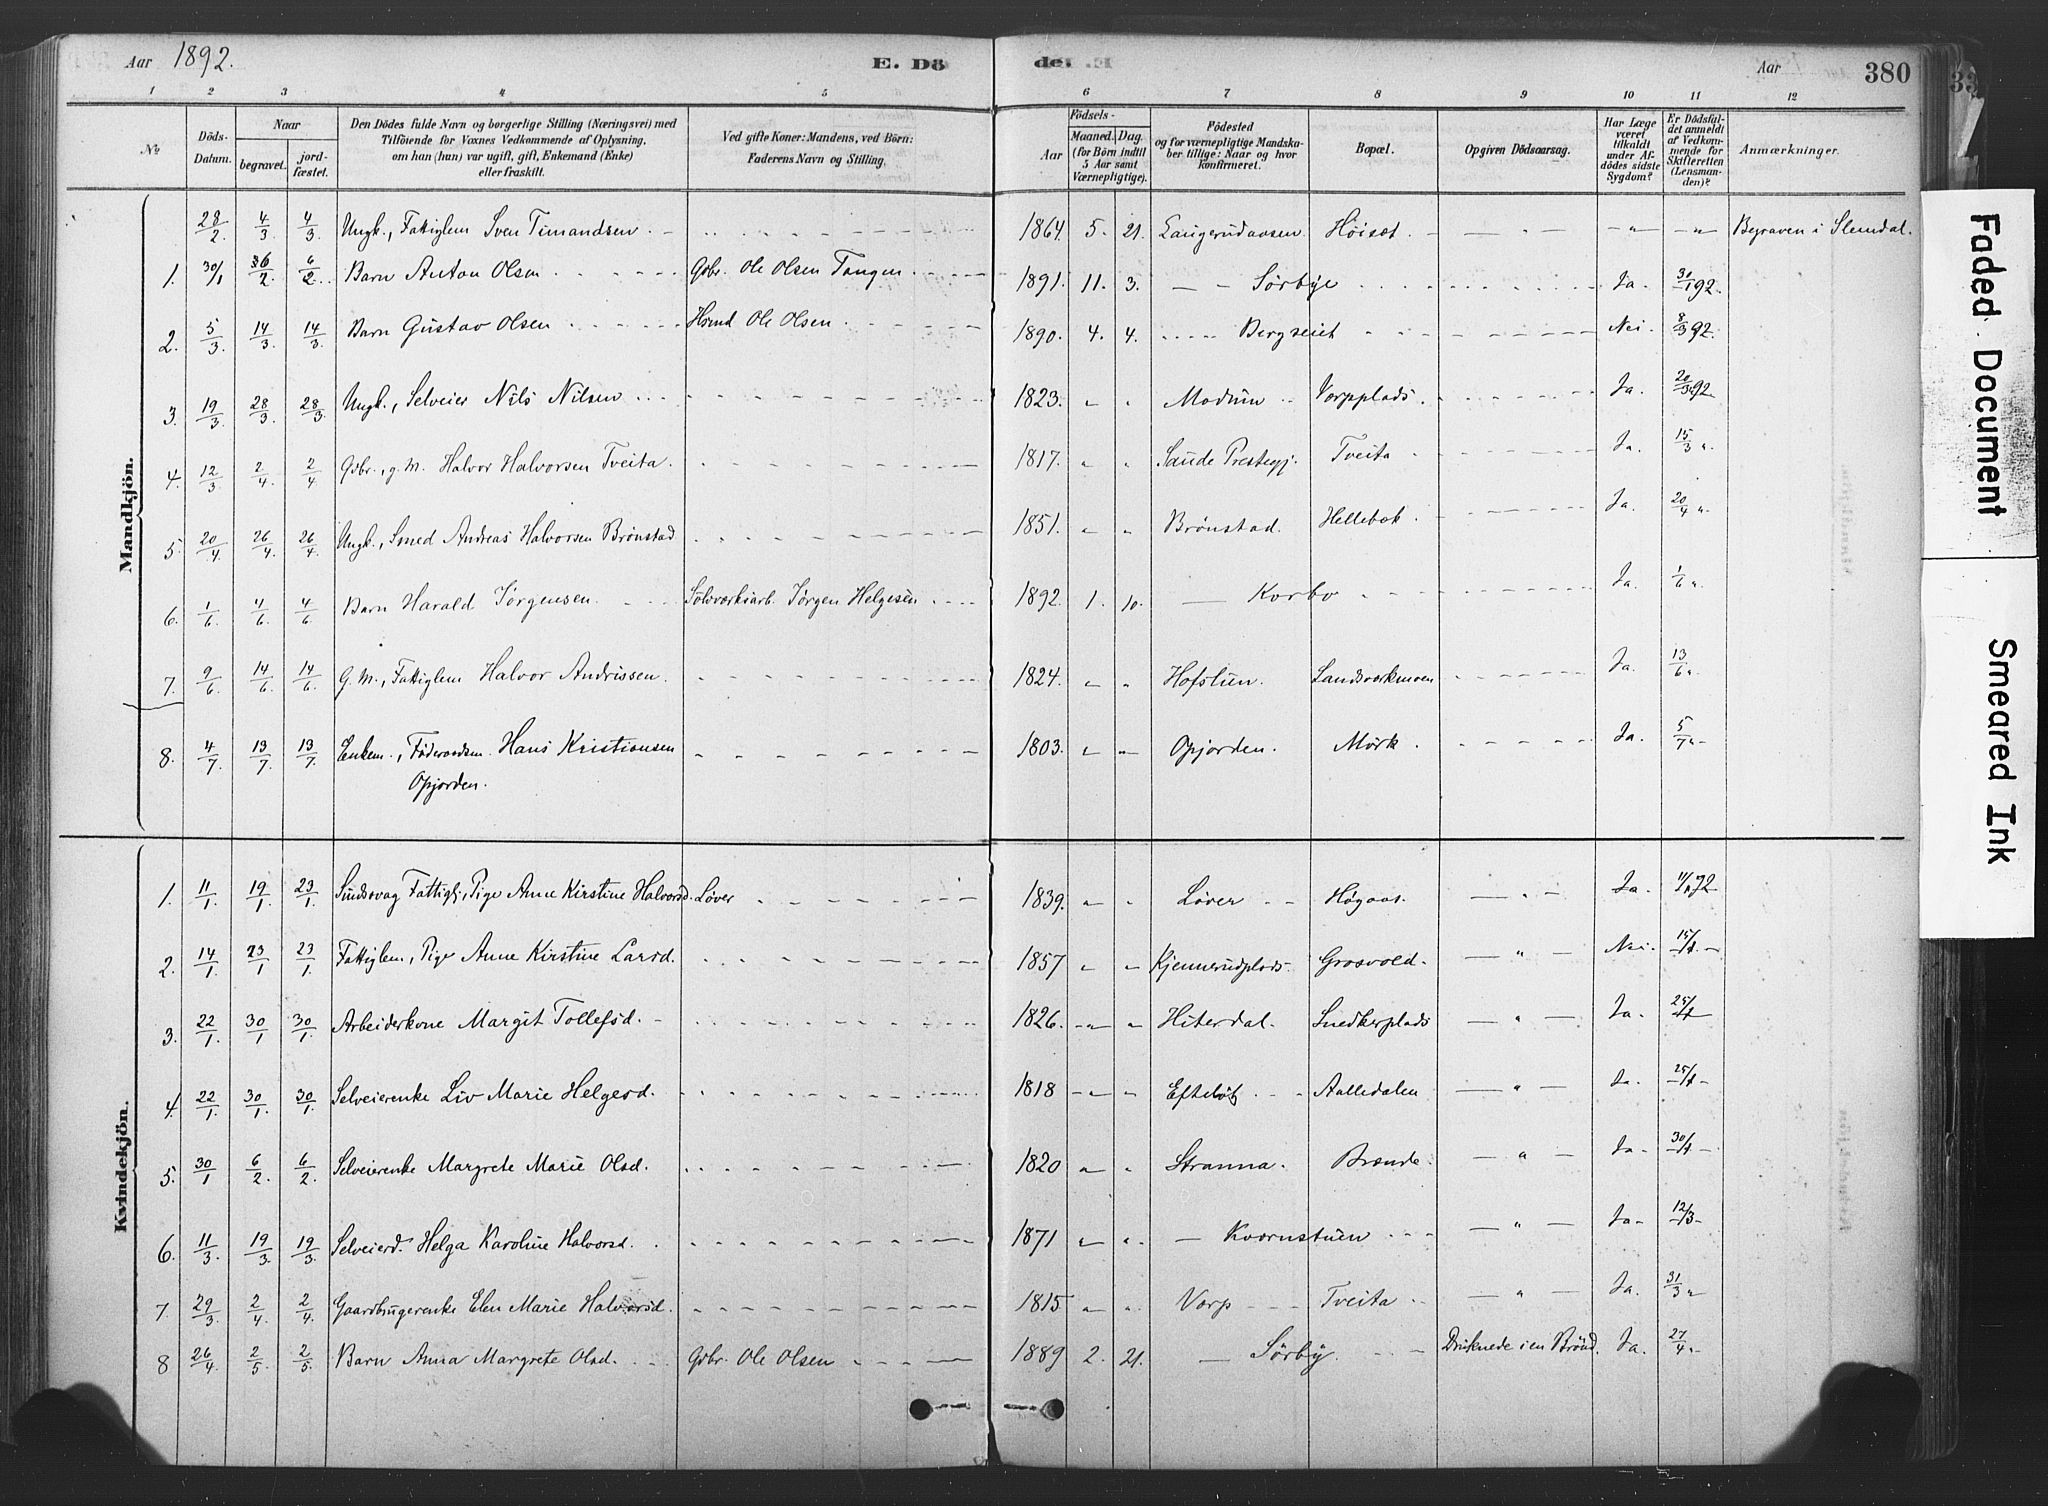 Aar 1892. E. Dö de. Aar 380
1 2 3 4 5 6 7 8 9 10 11 12
No Döds-Datum. Naar begravet. jord-fæstet. Den Dödes fulde Navn og borgerlige Stilling (Næringsvei) med Tilföiende for Voxnes Vedkommende af Oplysning, om han (hun) var ugift, gift, Enkemand (Enke) eller fraskilt. Ved gifte Koner: Mandens, ved Börn: Faderens Navn og Stilling. Födsels- Aar Maaned. Dag. (for Börn indtil 5 Aar samt Værnepligtige). Födested og for værnepligtige Mandskaber tillige: Naar og hvor konfirmeret. Bopæl. Opgiven Dödsaarsag. Har Læge været tilkaldt under Afdödes sidste Sygdom? Er Dödsfaldet anmeldt af Vedkommende for Skifteretten (Lensmanden)? Anmærkninger.
Mandkjön.
28/2 4/3 4/3 Ungk., Fattiglem Sven Timandsen 1864. 5. 21. Langerudaasen Höiset - " - - " - - " - Begraven i Slemdal.
1. 30/1 6/2 6/2 Barn Anton Olsen Gbr. Ole Olsen Tangen 1891. 11. 3. Sørbye Ja. 30/1 92.
2. 5/3 14/3 14/3 Barn Gustav Olsen Hsmd Ole Olsen 1890. 4. 4. Bergseiet Nei. 8/3 92.
3. 19/3 28/3 28/3 Ungk., Selveier Nils Nilsen 1823. " " Modum Vorpplads. Ja. 20/3 92
4. 12/3 2/4 2/4 Gbr., g. M. Halvor Halvorsen Tveita. 1817. " " Saude Prestegj. Tveita Ja. 15/3 "
5. 20/4 26/4 26/4 Ungk., Smed Andreas Halvorsen Brönstad 1851. " " Brönstad. Hellebæk. Ja. 20/4 "
6. 1/6 4/6 4/6 Barn Harald Jörgensen. Sölvværksarb. Jörgen Helgesen 1892. 1. 10. Korbo Ja. 1/6 "
7. 9/6 14/6 14/6 G. M., Fattiglem Halvor Andrissen. 1824. " " Hofstuen. Landsværkmoen Ja. 13/6 "
8. 4/7 13/7 13/7 Enkem., Föderaadsm. Hans Kristiansen 1803. " " Opjorden. Mörk. Ja. 5/7 "
Opjorden.
Kvindekjön.
1. 11/1 19/1 23/1 Sindssvag Fattigl., Pige Anne Kirstine Halvorsd. Löver 1839. " " Löver Högaas. - " - Ja. 11/1 92
2. 14/1 23/1 23/1 Fattiglem, Pige Anne Kirstine Larsd. 1857 " " Kjennerudplads Grosvold. - " - Nei. 15/1
3. 22/1 30/1 30/1 Arbeiderkone Margit Tollefsd. 1826. " " Hiterdal. Snedkerplads - " - Ja. 25/1
4. 22/1 30/1 30/1 Selveierenke Liv Marie Helgesd. 1818 " " Efteløt Aalledalen - " - Ja. 25/1
5. 30/1 6/2 6/2 Selveierenke Margrete Marie Olsd. 1820 " " Stranna. Brænde. - " - Ja. 30/1
6. 11/3 19/3 19/3 Selveierd. Helga Karoline Halvorsd. 1871 " " Kvernstuen - " - Ja 12/3
7. 29/3 2/4 2/4 Gaardbrugerenke Elen Marie Halvorsd. 1815 " " Vorp Tveita - " - Ja. 31/3 "
8 26/4 2/5 2/5 Barn Anna Margrete Olsd. Gbr. Ole Olsen 1889 2. 21. Sörby. Druknede i en Brönd. Ja. 27/4 "
Faded Document
Smeared Ink